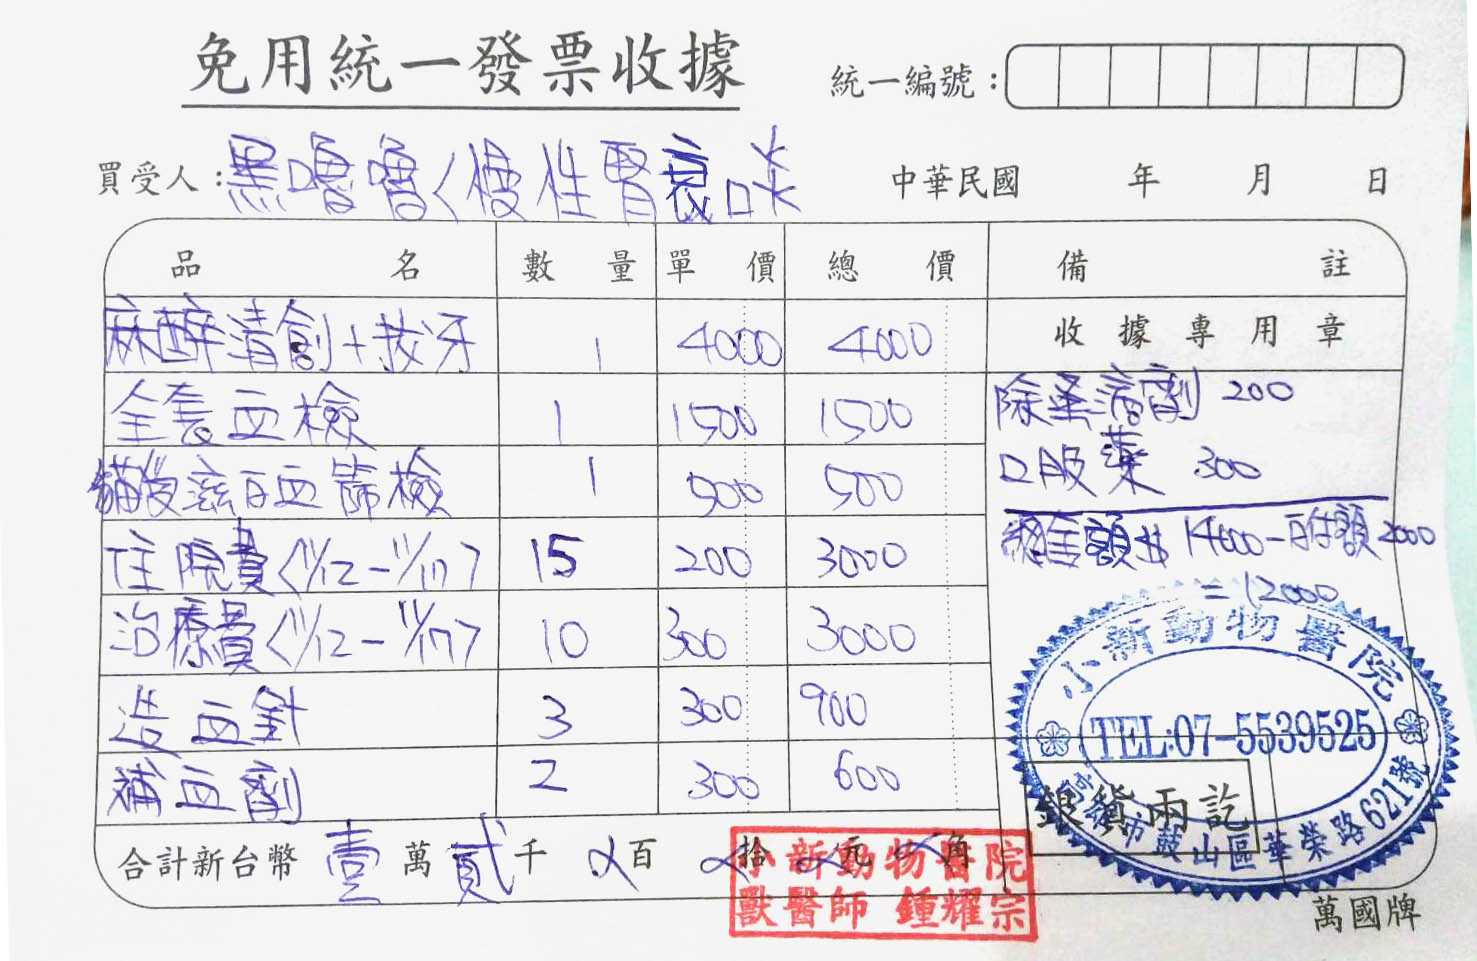 免用統一發票收據
統一編號：
買受人：黑嚕嚕<慢性腎衰 中華民國 年 月 日
品名 數量 單價 總價 備註
麻醉清創+拔牙 1 4000 4000 收據專用章
全套血檢 1 1500 1500 除蚤滴劑 200
貓愛滋白血篩檢 1 500 500 口服藥 300
住院費<11/12-11/17> 15 200 3000 總金額$14000-已付額2000
=12000
治療費<11/12-11/17> 10 300 3000
造血針 3 300 900
補血劑 2 300 600
小新動物醫院
TEL:07-5539525
高雄市鼓山區華榮路621號
銀貨兩訖
合計新台幣 壹萬貳千 百 拾 元 角
小新動物醫院
獸醫師 鍾耀宗
萬國牌